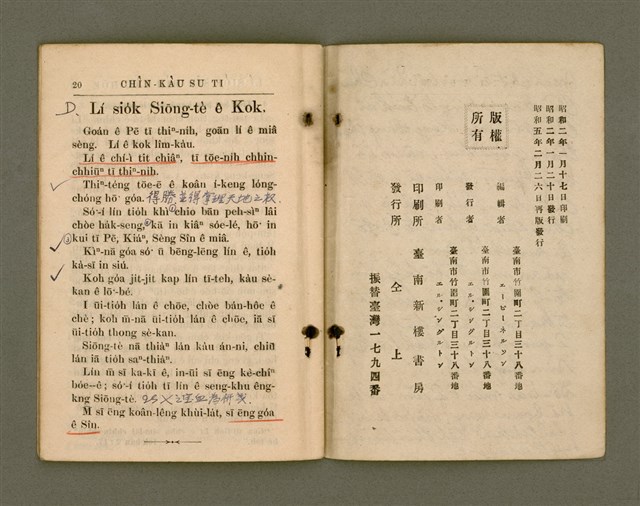 20 CHÌN-KÀU SU TI
D. Lí sio̍k Siōng-tè ê Kok.
Goán ê Pē tī thiⁿ-nih, goān lí ê miâ
sèng. Lí ê kok lîm-kàu.
Lí ê chí-ì tit chiâⁿ, tī tōe-nih chhin-
chhiūⁿ tī thiⁿ-nih.
Thiⁿ-téng tōe-ē ê koân í-keng lóng-
chóng hō͘ góa.
Só͘-í lín tio̍h khì chio bān peh-sìⁿ lâi
chòe ha̍k-seng, kā in kiâⁿ sóe-lé, hō͘ in
kui tī Pē, Kiáⁿ, Sèng Sîn ê miâ.
Kìⁿ-nā góa só͘ ū bēng-lēng lín ê, tio̍h
kà-sī in siú.
Koh góa ji̍t-ji̍t kap lín tī-teh, kàu sè-
kan ê lō͘-bé.
I ūi-tio̍h lán ê chōe, chòe bán-hôe ê
chè; koh m̄-nā ūi-tio̍h lán ê chōe, iā sī
ūi-tio̍h thong sè-kan.
Siōng-tè nā thiàⁿ lán káu án-ni, chiū
lán iā tio̍h saⁿ-thiàⁿ.
Lín m̄ sī ka-kī ê, in-ūi sī ēng kè-chîⁿ
bóe--ê; só͘-í tio̍h tī lín ê seng-khu êng-
kng Siōng-tè.
M̄ sī ēng koân-lêng khùi-la̍t, sī ēng góa
ê Sîn.
版權
所有
昭和二年一月十七日印刷
昭和二年一月二十日發行
昭和五年二月二六日再版發行
編輯者 臺南市竹園町二丁目三十八番地
エーピーネルソン
發行者 臺南市竹園町二丁目三十八番地
エル、シングルトン
印刷者 臺南市竹園町二丁目三十八番地
エル、シングルトン
印刷所 臺南新樓書房
發行所 仝上
振替臺灣一七九四番